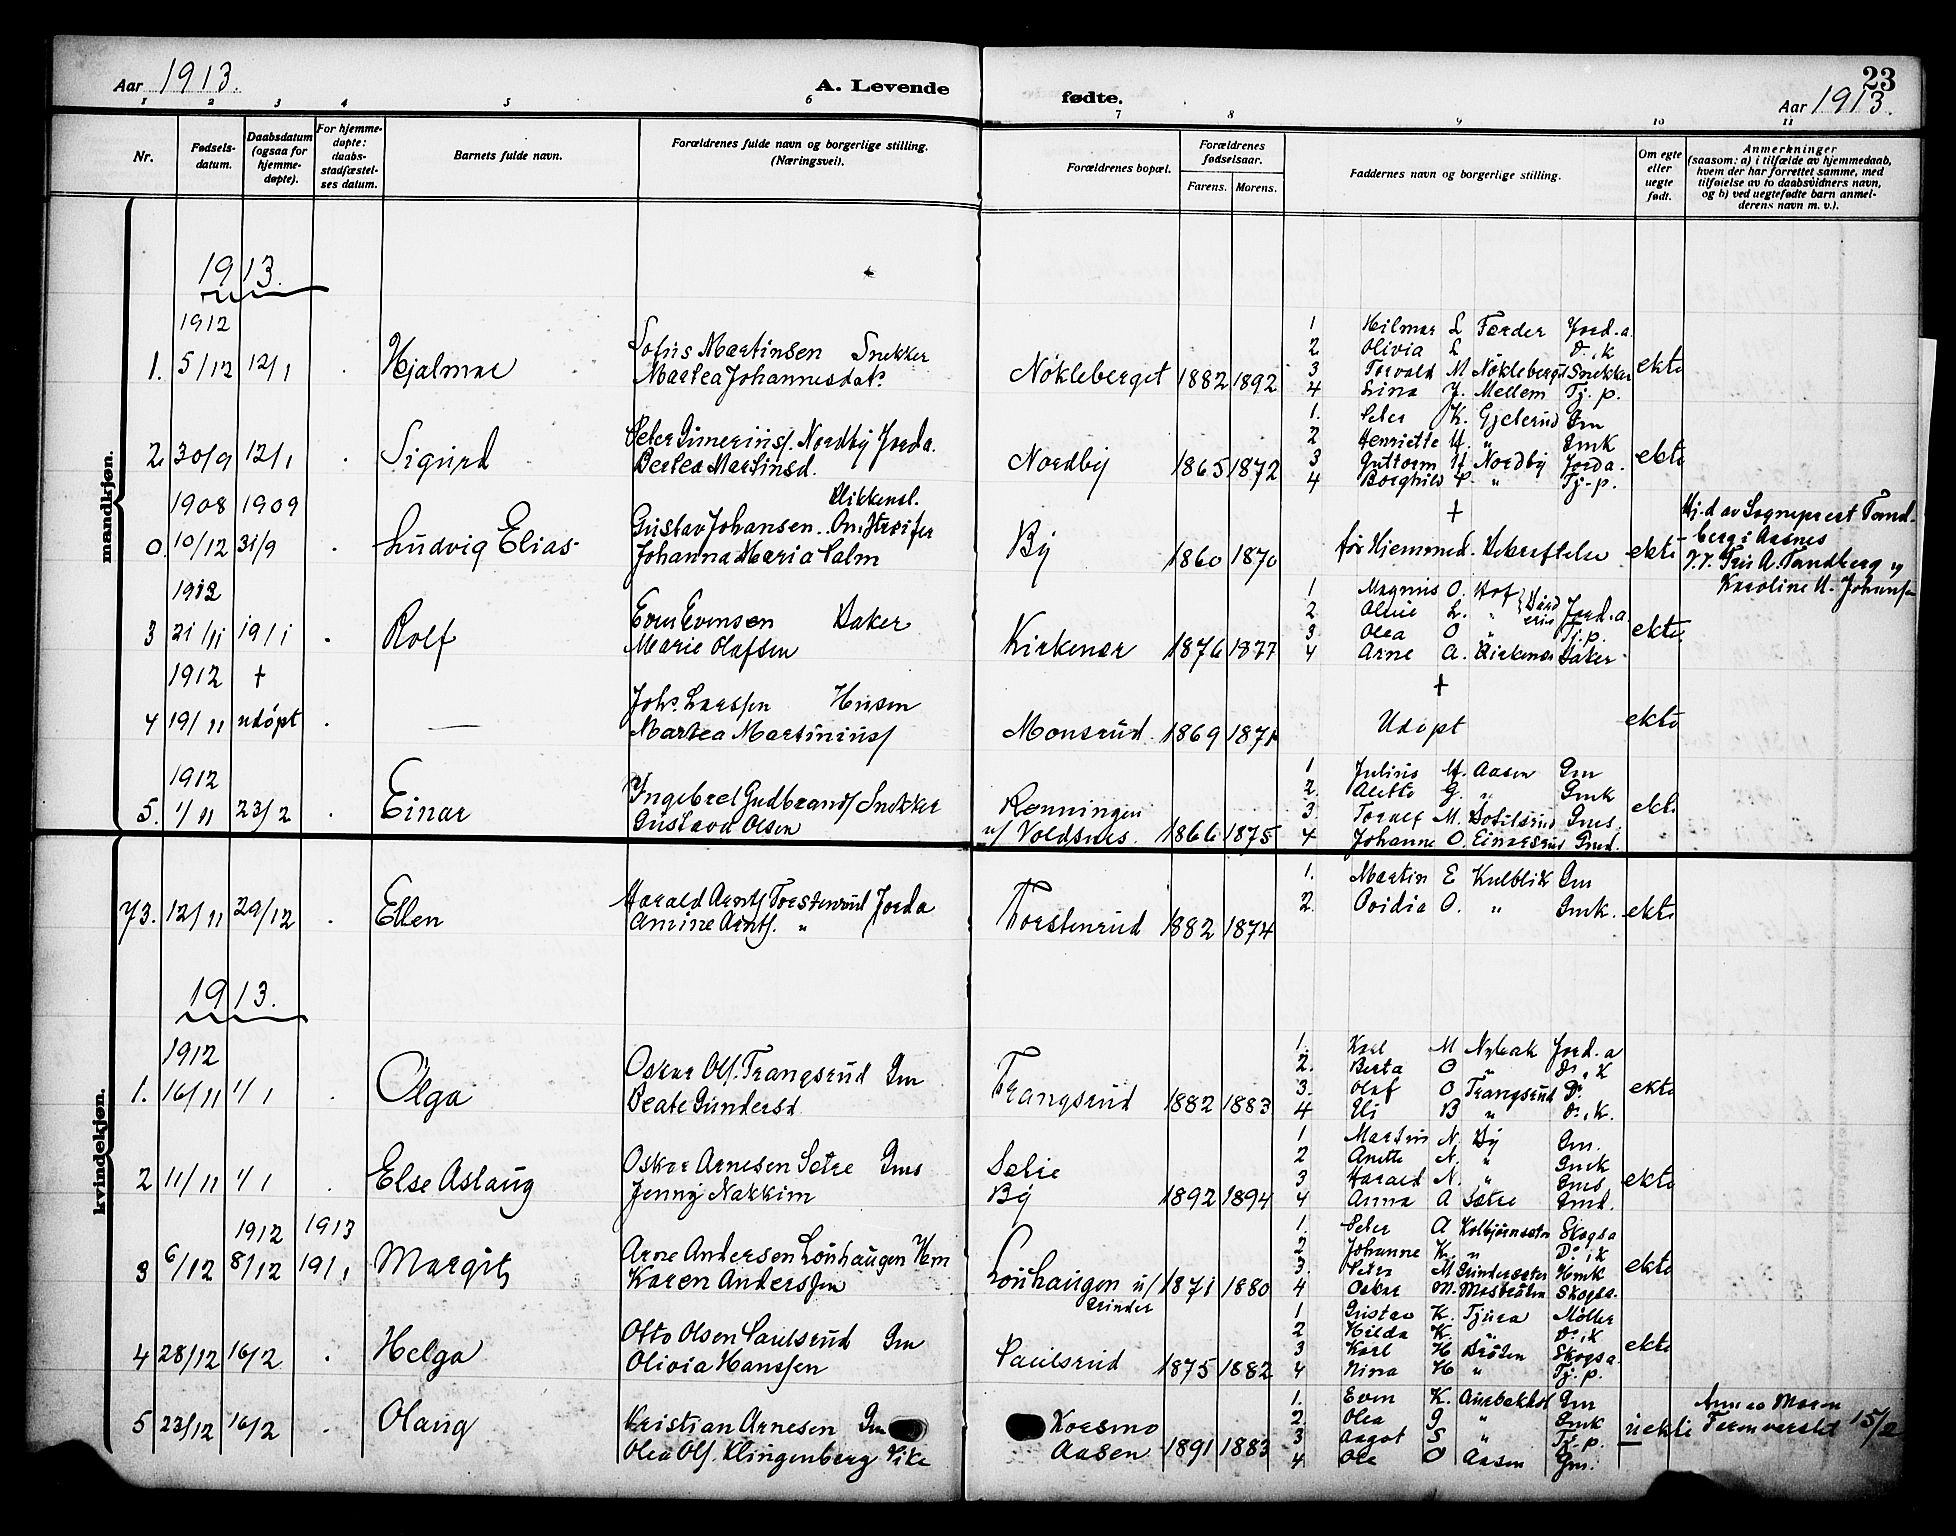 Aar 1913. A. Levende fødte. 23
Aar 1913.
1 2 3 4 5 6 7 8 9 10 11
Nr.
Fødsels-
datum.
Daabsdatum
(ogsaa for
hjemme-
døpte).
For hjemme-
døpte:
daabs-
stadfæstel-
ses datum.
Barnets fulde navn.
Forældrenes fulde navn og borgerlige stilling.
(Næringsvei).
Forældrenes bopæl.
Forældrenes
fødselsaar.
Farens. Morens.
Faddernes navn og borgerlige stilling.
Om egte
eller
uegte
født.
Anmerkninger
(saasom: a) i tilfælde av hjemmedaab,
hvem der har forrettet samme, med
tilføielse av to daabsvidners navn,
og b) ved uegtefødte barn anmel-
derens navn m. v.).
mandkjøn.
1913.
1912
1. 5/12 12/1 Hjalmar
Sofus Martinsen Snekker
Martea Johannesdat.
Nökleberget 1882 1892
1 Hilmar L Færder Jord.a
2 Olivia L D., K
3 Torvald M Nökleberget Snekker
4 Lina J. Mellem Tj.p.
ekte
2. 30/9 12/1 Sigurd
Peter Gunerius/. Nordby Jorda.
Bertea Martinsd.
Nordby 1865 1872
1. Peter K. Gjeterud Gm
2 Henriette H. " Gmk
3 Guttorm Nordby Jorda.
4 Borghild P. " Tj-p.
ekte
1908 1909
0. 10/12 31/9 Ludvig Elias
Blikkensl.
Gustav Johansen. Omstreifer
Johanna Maria Palm
By 1860 1870
+
før Hjemmed. Bekræftelse
ekte
Hj.d av Sogneprest Tand-
berg i Aasnes
Fru A. Tandberg og
Karoline M. Johans/n
1912
3 21/11 19/1 Rolf
Even Evensen Baker
Marie Olafsen
Kirkenær 1876 1877
1 Magnus O. Hof
2 Oline L. " Jord.a
3. Olea O " Tj.p.
4 Arne A. Kirkenær Baker
ekte
1912 +
4 19/11 udöpt —
Johs. Larssen Husm
Martea Martinius/
Monsrud 1869 1871
+
Udöpt
ekte
1912
5. 1/11 23/2 Einar
Ingebret Gudbrands/ Snekker
Gustava Olsen
Rønningen
u/ Voldsnes. 1866 1875
1 Julius M. Aasen Gm
2. Alette G. " Gmk
3. Toralf M. Botilsrud Gms.
4 Johanne O. Einarsrud Gmd.
ekte
kvindekjøn.
73. 12/11 29/12 Ellen
Harald Arnts/ Torstenrud Jorda
Amine Arnts/. "
Torstenrud 1882 1874
1. Martin E Kulblik Gm
2. Ovidia O. " Gmk.
ekte
1913.
1912
1. 16/11 1/1 Olga
Oskar Ols/. Trangsrud Gm
Beate Gundersd
Trangsrud 1882 1883
1. Karl M Nybak Jord.a
2. Berta O " D., K
3. Olaf O Trangsrud D.
4 Eli B " D., K.
ekte
2 11/11 1/1 Else Aslaug
Oskar Arnesen Sætre Gms
Jenny Nakkim
Sætre
By 1892 1894
1 Martin N. By Gm.
2 Anette N. " Gmk
3 Harald N. " Gms
4 Anna A Sætre Gmd.
ekte
1912 1913
3 6/12 8/12 19/1 Margit
Arne Andersen Louhaugen Hm
Karen Anderssen
Louhaugen u/
Grinder 1871 1880
1. Peter A Kolbjørnsætn Skogsa
2. Johanne K. " D., K
3. Petra M Grindersæter Hmk
4 Oskar M. Mosbråten Skogsa.
ekte
4 28/12 16/2 Helga
Otto Olsen Paulsrud Gm
Olivia Hanssen
Paulsrud 1875 1882
1 Gustav K. Tjura Møller
2 Hilda K. " D., K
3 Karl H Bråten Skogsa.
4 Nina H " Tj.p.
ekte
5 23/12 16/2 Olaug
Kristian Arnesen Gm
Olea Ols/. Klingenberg Pike
Korsmo
Aasen 1891 1883
1. Even K. Aurbakken Gm
2. Olea G " Gmk
3 Aagot S " Tj.p.
4 Ole O Aasen Gm.
uekte
15/2